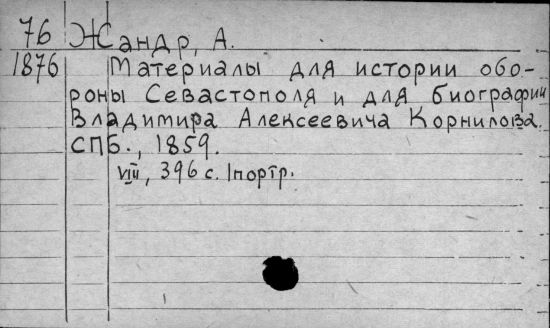 76 Жандр, А.
1876 Материалы для истории обо-
роны Севастополя и для биографии
Владимира Алексеевича Корнилова.
СПБ., 1859.
VIII, 396 с. 1портр.